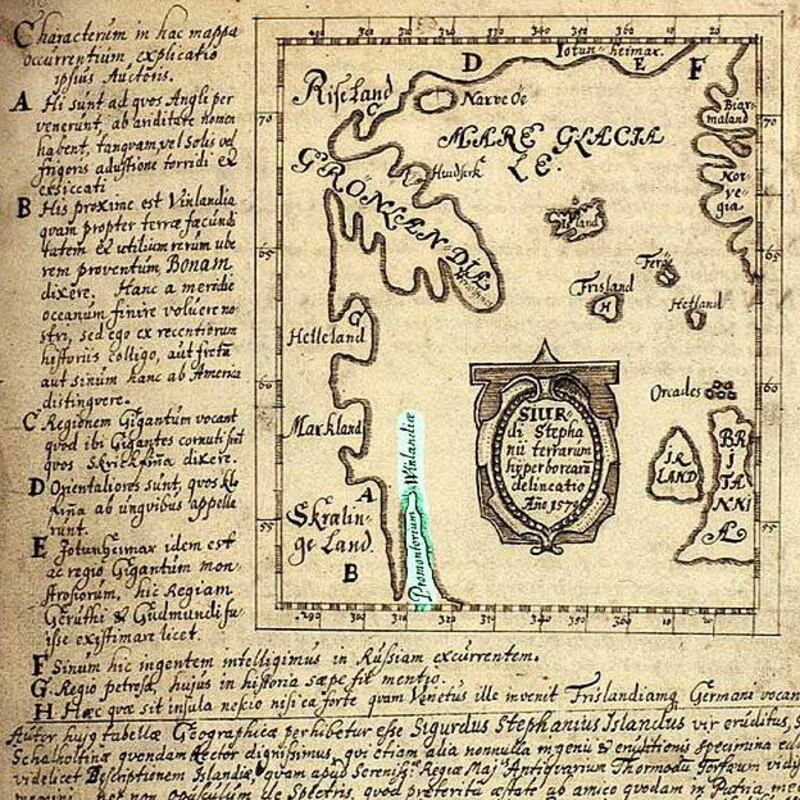 Characterum in hac mappa
occurrentium, explicatio
ipsius Auctoris.
A Hi sunt ad quos Angli per
venerunt, ab ariditate nomen
habent, tanquam vel Solis vel
frigoris adustione torridi et
exsiccati
B His proxime est Vinlandia
quam propter terræ fæcundi
tatem et utilium rerum ube
rem proventum, Bonam
dixere. Hanc a meridie
oceanum finire voluere no
stri, sed ego ex recentiorum
historiis colligo, aut fretum
aut sinum hanc ab America
distingvere.
C Regionem Gigantum vocant
quod ibi Gigantes cornuti sint
quos Skrickfinna dixere.
D Orientaliores sunt, quos Klo
fina ab unguibus appella
runt.
E Jotunheimar idem est
ac regio Gigantum mon
strosorum, hic Regiam
Geruthi & Gudmundi fu
isse existimare licet.
F Sinum hic ingentem intelligimus in Russiam excurrentem.
G. Regio petrosa, hujus in historia sæpe fit mentio.
H Hæc quæ sit insula nescio nisi ea forte quam Venetus ille invenit Frislandiamq Germani vocan
Autor hujg tabellæ Geographicæ perhibetur esse Sigurdus Stephanius Islandus vir eruditus
Schalholtinæ quondam Rector dignissimus, qui etiam alia nonnulla ingenii & eruditionis specimina ed
videlicet Descriptionem Islandiæ quam apud Sereniss. Regiæ Maj. Antiqvarium Thormodu Torfæum vidi
nec non opusculum de Spectris, quod præterita æstate ab amico quodam in Patria
290 310 320 330 340 350 360 10 20
Jotunheimar.
D E F
Riseland
C
Narve Oe
70 70
Biarmaland
MARE GLACIA
LE.
Huidserk
GRONLANDIA
Norvegia
Island
65 65
Herjolfsnes
Feroe
Frisland
H
Hetland
G
Helleland
60 60
Orcades
Markland
Promontorium Winlandiæ
SIUR-
di Stepha
nii terrarum
hyperborearū
delineatio
Año 1570
JR
LAND
BRITANNIA
A
Skralin-
ge Land.
B
55 55
290 310 320 330 340 350 360 10 20